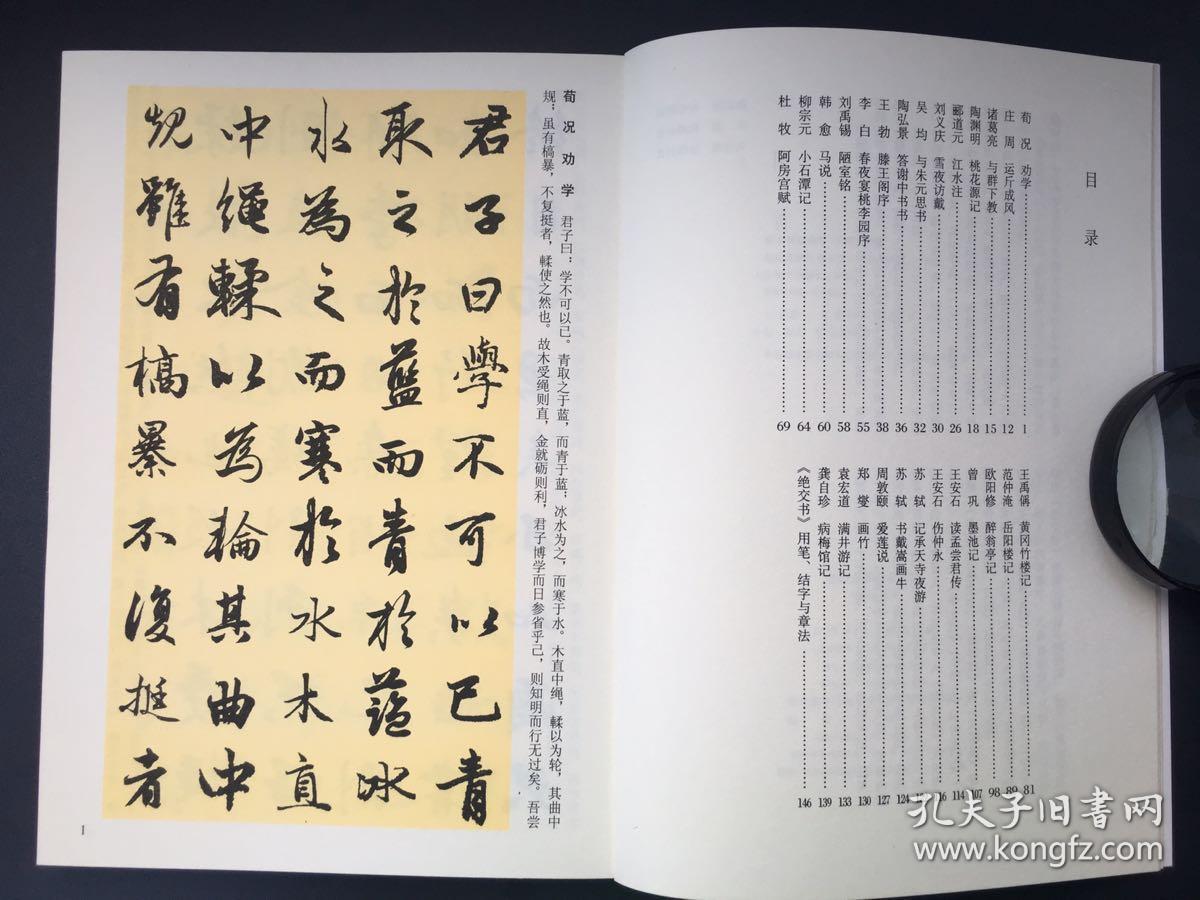 目录
荀况 劝学 1
庄周 运斤成风 12
诸葛亮 与群下教 15
陶渊明 桃花源记 18
郦道元 江水注 26
刘义庆 雪夜访戴 30
吴均 与朱元思书 32
陶弘景 答谢中书书 36
王勃 滕王阁序 38
李白 春夜宴桃李园序 55
刘禹锡 陋室铭 58
韩愈 马说 60
柳宗元 小石潭记 64
杜牧 阿房宫赋 69
王禹偁 黄冈竹楼记 81
范仲淹 岳阳楼记 89
欧阳修 醉翁亭记 98
曾巩 墨池记 107
王安石 读孟尝君传 114
王安石 伤仲永
苏轼 记承天寺夜游
苏轼 书戴嵩画牛 124
周敦颐 爱莲说 127
郑燮 画竹 130
袁宏道 满井游记 133
龚自珍 病梅馆记 139
《绝交书》用笔、结字与章法 146
荀况劝学 君子曰：学不可以已。青取之于蓝，而青于蓝；冰水为之，而寒于水。木直中绳，輮以为轮，其曲中
规；虽有槁暴，不复挺者，輮使之然也。故木受绳则直，金就砺则利，君子博学而日参省乎己，则知明而行无过矣。吾尝
君子曰學不可以已青
取之於藍而青於藍冰
水為之而寒於水木直
中繩輮以為輪其曲中
規雖有槁暴不復挺者
1
孔夫子旧书网
www.kongfz.com